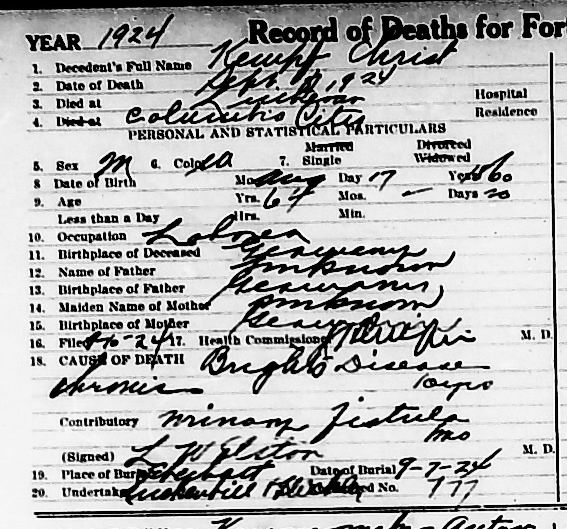 YEAR 1924 Record of Deaths for For
1. Decedent's Full Name Kempf Christ
2. Date of Death 1924
3. Died at Hospital
4. Died at Columbia City Residence
PERSONAL AND STATISTICAL PARTICULARS
Married Divorced
5. Sex M 6. Color 7. Single Widowed
8 Date of Birth Mo. Aug Day 17 Year 1860
9. Age Yrs. 64 Mos. – Days 20
Less than a Day Hrs. Min.
10. Occupation Laborer
11. Birthplace of Deceased Germany
12. Name of Father Unknown
13. Birthplace of Father Germany
14. Maiden Name of Mother Unknown
15. Birthplace of Mother Germany
16. Filed 17. Health Commissioner M. D.
18. CAUSE OF DEATH Brights Disease
Chronic 10 yrs
Contributory Urinary Fistula
mo
(Signed) L W Elston M. D.
19. Place of Burial Date of Burial 9-7-24
20. Undertaker No. 177